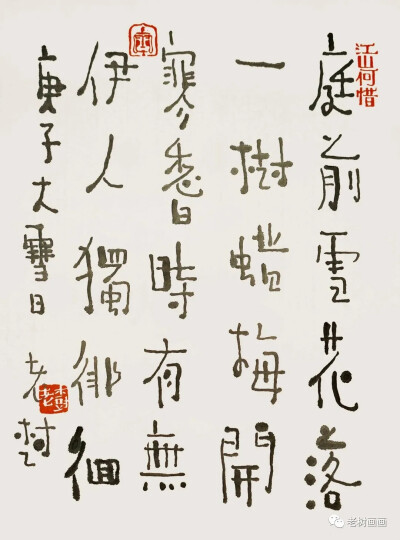 江山何惜
庭前雪花落
一樹蠟梅開
香時有無
伊人獨徘徊
庚子大雪日 老樹
老树画画